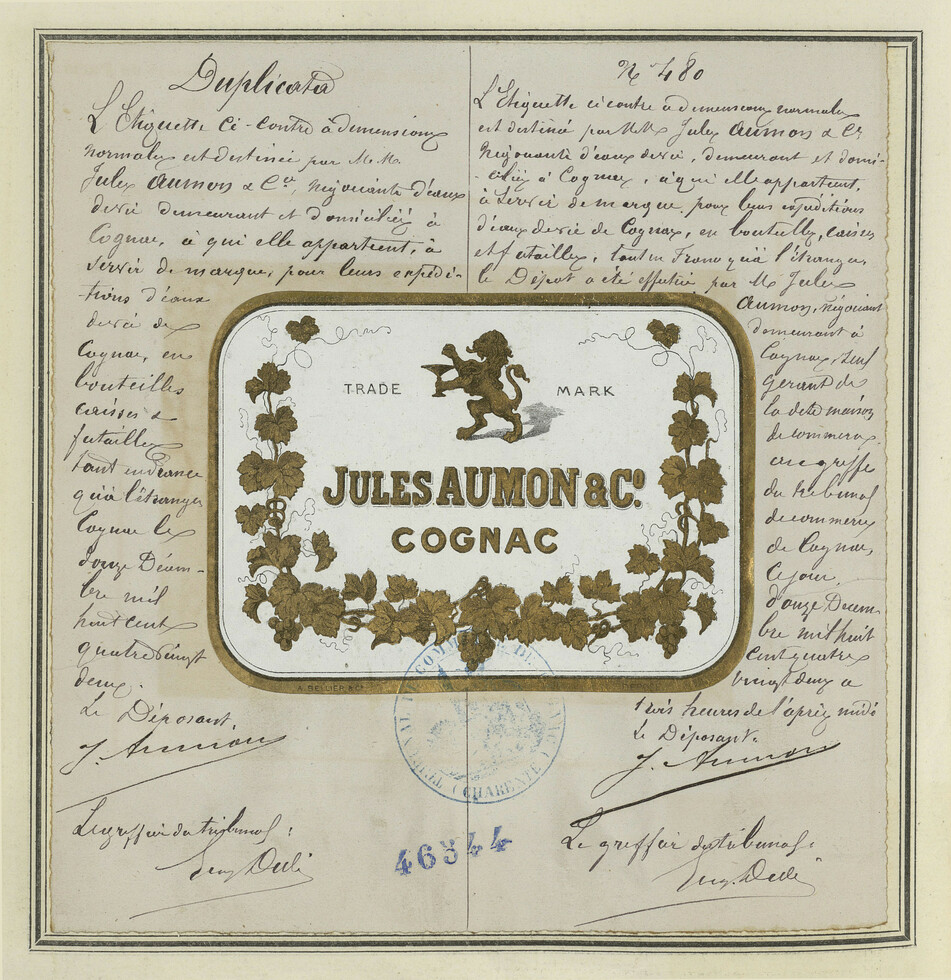 Duplicata
L'Etiquette ci-contre à dimensions
normales est destinée par M.M.
Jules Aumon & Cie, négociants d'eaux
de vie demeurant et domiciliés à
Cognac, à qui elle appartient, à
servir de marque, pour leurs expédi-
tions d'eaux
de vie de
Cognac, en
bouteilles
caisses &
futailles
tant en France
qu'à l'étranger
Cognac le
douze Décem-
bre mil
huit cent
quatre vingt
deux.
Le Déposant,
J. Aumon
Le greffier du tribunal:
N° 480
L'Etiquette ci contre à dimensions normales
est destiné par MM. Jules Aumon & Cie
négociants d'eaux de vie, demeurant et domi-
-ciliés à Cognac, à qui elle appartient,
à servir de marque, pour leurs expéditions
d'eaux de vie de Cognac, en bouteilles, caisses
et futailles, tant en France qu'à l'étranger,
le Dépôt a été effectué par M. Jules
Aumon, négociant
demeurant à
Cognac, seul
gérant de
la dite maison
de commerce,
au greffe
du tribunal
de commerce
de Cognac,
Ce jour,
douze Décem-
bre mil huit
cent quatre
vingt deux à
trois heures de l'après midi
Le Déposant.
J. Aumon
Le greffier du tribunal:
TRADE MARK
JULES AUMON & Co.
COGNAC
A. BELLIER & Cie
TRIBUNAL DE COMMERCE DE COGNAC
(CHARENTE)
46344